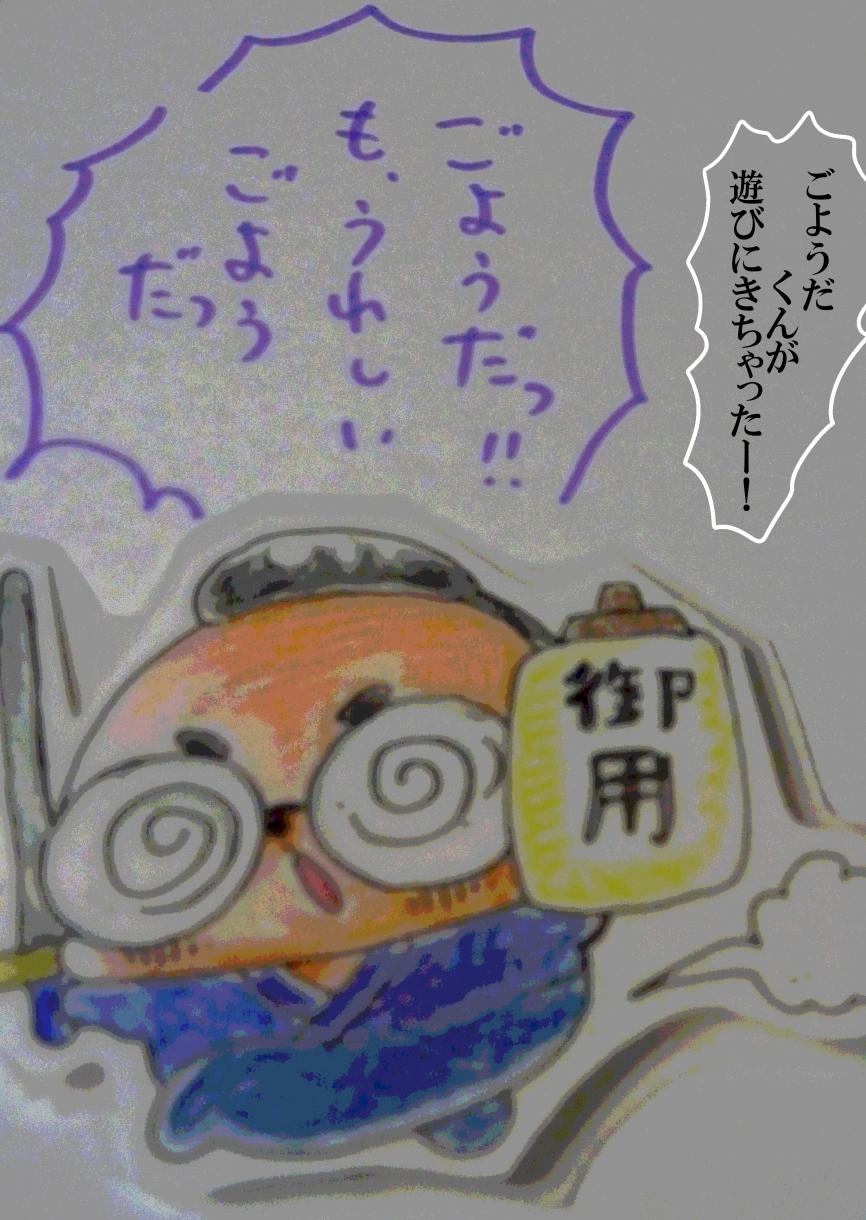 ごようだ
くんが
遊びにきちゃったー！
ごようだっ!!
も、うれしい
ごよう
だっ
御用